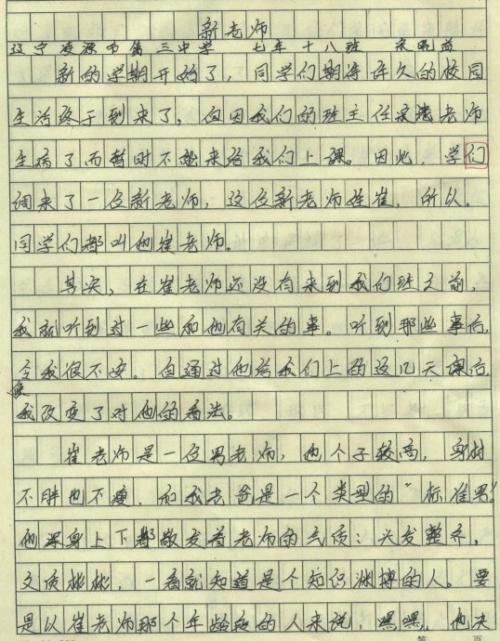 新老师
辽宁凌源市第三中学 七年十八班 宋明益
新的学期开始了，同学们期待许久的校园
生活终于到来了，但因我们的班主任老师
生病了而暂时不能来给我们上课。因此，学们
调来了一位新老师，这位新老师姓崔，所以，
同学们都叫他崔老师。
其实，在崔老师还没有来到我们班之前，
我就听到过一些和他有关的事。听到那些事后，
令我很不安。但通过他给我们上的这几天课后，
使
我改变了对他的看法。
崔老师是一位男老师，他个子较高，身材
不胖也不瘦，和我老爸是一个类型的“标准男”
他浑身上下都散发着老师的气质：头发整齐，
文质彬彬，一看就知道是个知识渊博的人。要
是以崔老师那个年龄段的人来说，嘿嘿，他决